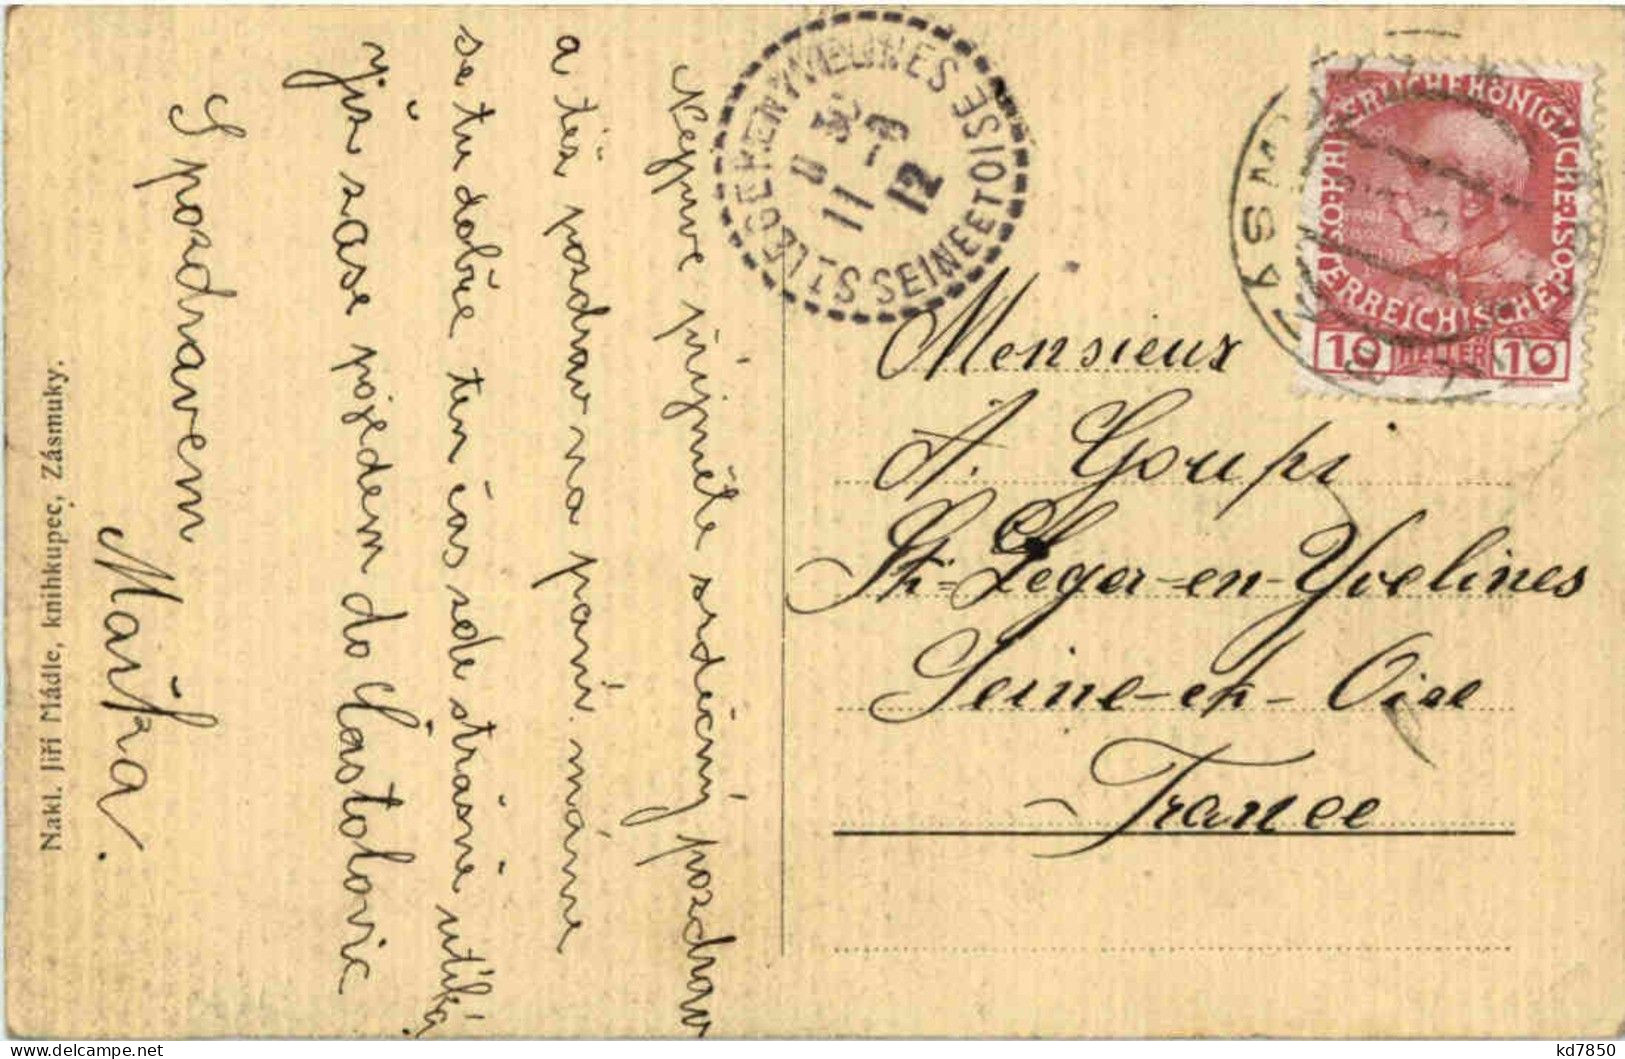 Nejprve přijměte srdečný pozdrav
a též pozdrav na paní. máme
se tu dobře ten čas zde strašně utíká
již zase pojedem do Častolovic
S pozdravem
Mařka.
Nakl. Jiří Mádle, knihkupec, Zásmuky.
ST LEGER EN YVELINES SEINE ET OISE
11 -9
12
ÖSTERREICHISCHE POST
10 HELLER 10
Monsieur
A. Goupi
St-Leger-en-Yvelines
Seine-et-Oise
France
kd7850